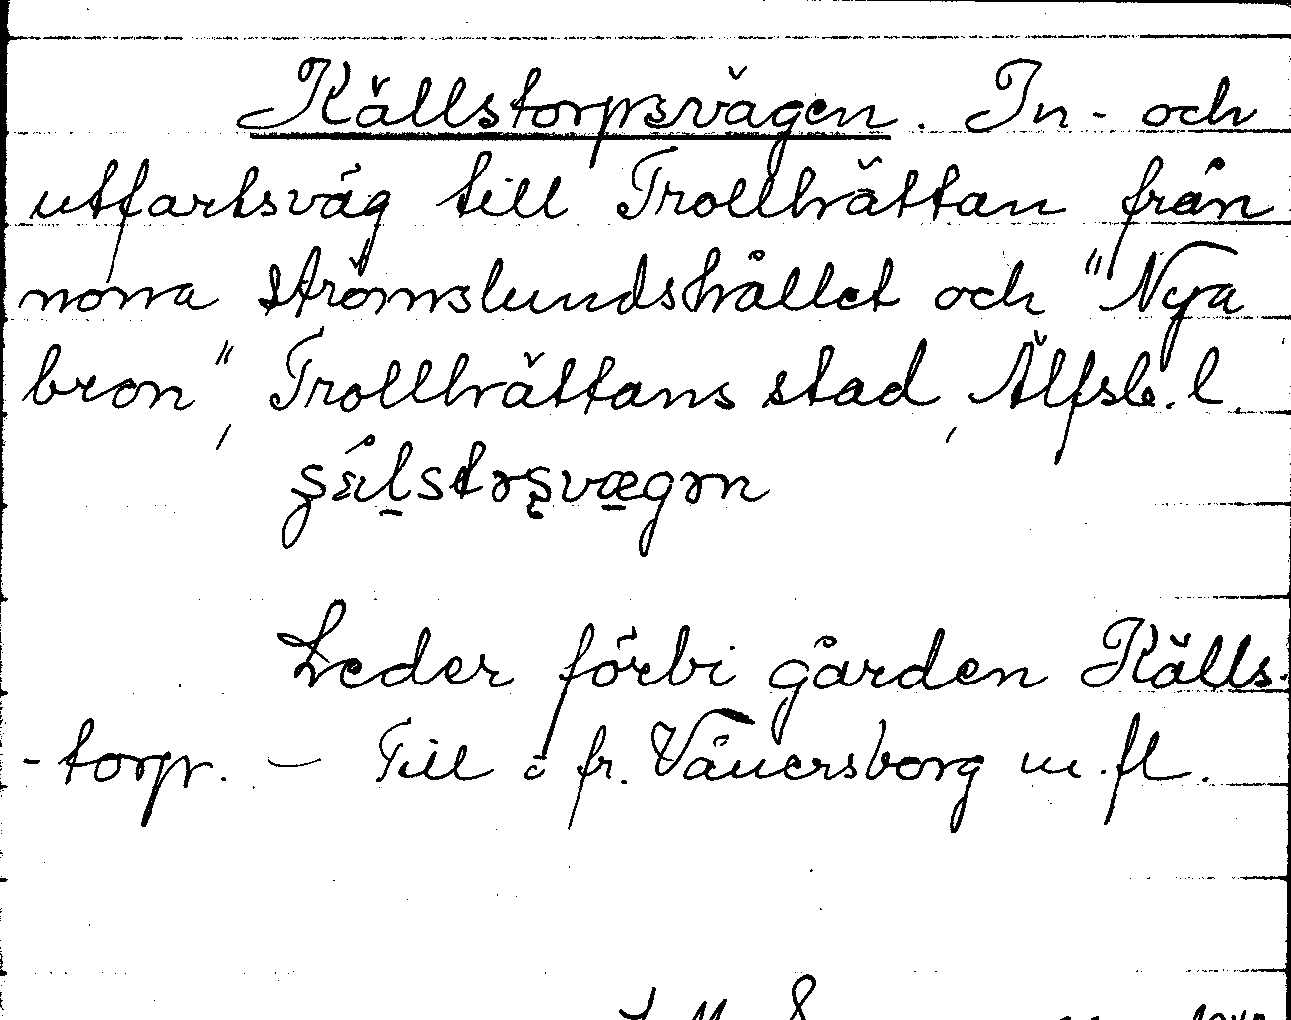 Källstorpsvägen. In- och
utfartsväg till Trollhättan från
norra Strömslundshållet och "Nya
bron", Trollhättans stad, Älfsb. l.
Leder förbi gården Källs-
-torp. – Till o fr. Vänersborg m. fl.